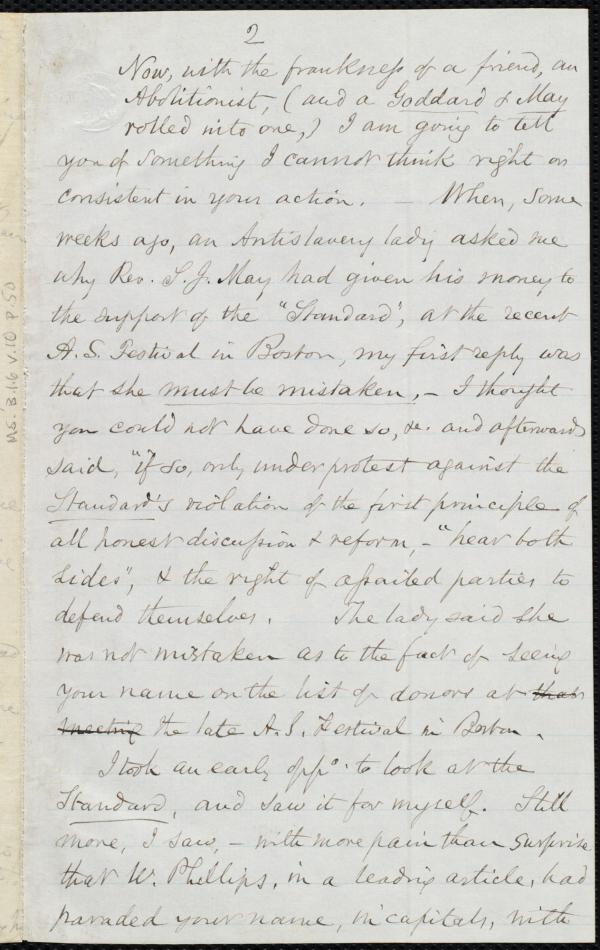 2
Now, with the frankness of a friend, an
Abolitionist, (and a Goddard & May
rolled into one,) I am going to tell
you of something I cannot think right or
consistent in your action. — When, some
weeks ago, an Antislavery lady asked me
why Rev. S. J. May had given his money to
the support of the "Standard", at the recent
A. S. Festival in Boston, my first reply was
that she must be mistaken, - I thought
you could not have done so, &c. and afterwards
said, "if so, only under protest against the
Standard's violation of the first principle of
all honest discussion & reform, - "hear both
sides", & the right of assailed parties to
defend themselves. The lady said she
was not mistaken as to the fact of seeing
your name on the list of donors at that
meeting the late A. S. Festival in Boston.
I took an early oppo. to look at the
Standard, and saw it for myself. Still
more, I saw, - with more pain than surprise
that W. Phillips, in a leading article, had
paraded your name, in capitals, with
MS. B.1.6 V.10 P.50